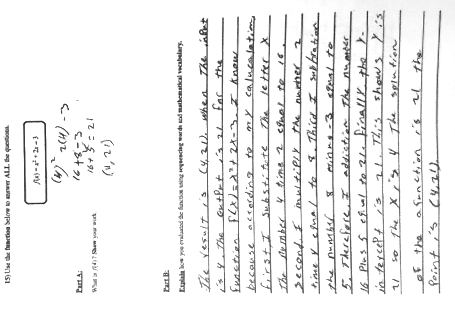 15) Use the function below to answer ALL the questions.
f(x) = x² + 2x − 3
Part A:
What is f(4)? Show your work
(4)² 2(4) − 3
16 + 8 − 3
16 + 5 = 21
(4, 21)
Part B:
Explain how you evaluated the function using sequencing words and mathematical vocabulary.
The result is (4, 21). When The input
is 4. The output is 21 for the
function f(x) = x² + 2x − 3. I know
because according to my calucalation,
first I substitute The letter x
The number 4 time 2 equal to 16.
second I multiply the number 2
time 4 equal to 8 Third I subtration
the number 8 minus 3 equal to
5. Therefore, I addiction The number
16 Plus 5 equal to 21. Finally the y-
intercept is 21. This shows y is
21 so the x is 4 The solution
of the afunction is 21 the
Point is (4,21).